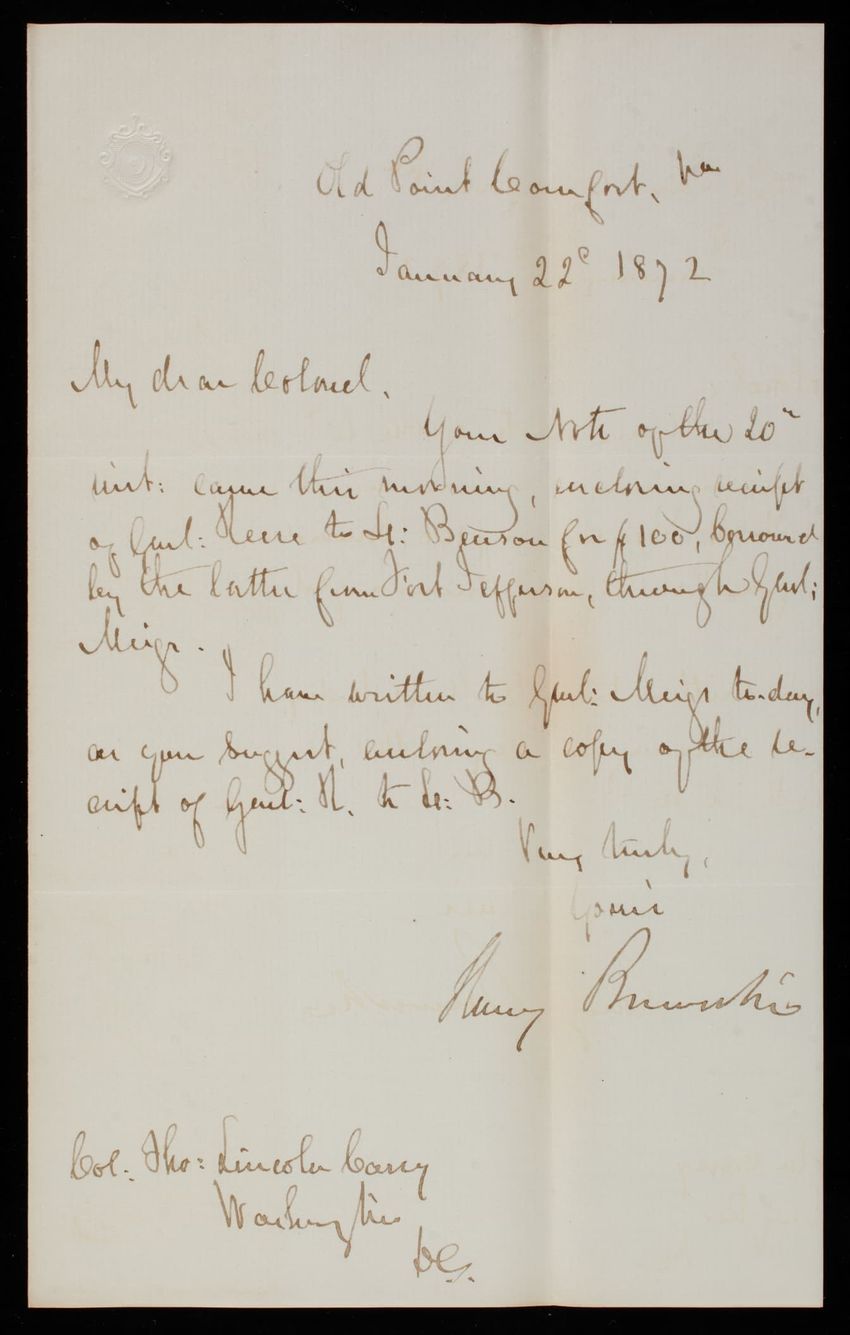 Old Point Comfort, Va
January 22d 1872
My dear Colonel,
Your Note of the 20"
inst: came this morning, enclosing receipt
of Genl: Reese to Lt: Benson for $100, borrowed
by the latter from Fort Jefferson, through Genl:
Meigs.
I have written to Genl: Meigs to-day,
as you suggest, enclosing a copy of the re-
ceipt of Genl: R. to Lt: B.
Very truly,
Yours
Henry
Col: Tho: Lincoln Casey
Washington
DC.